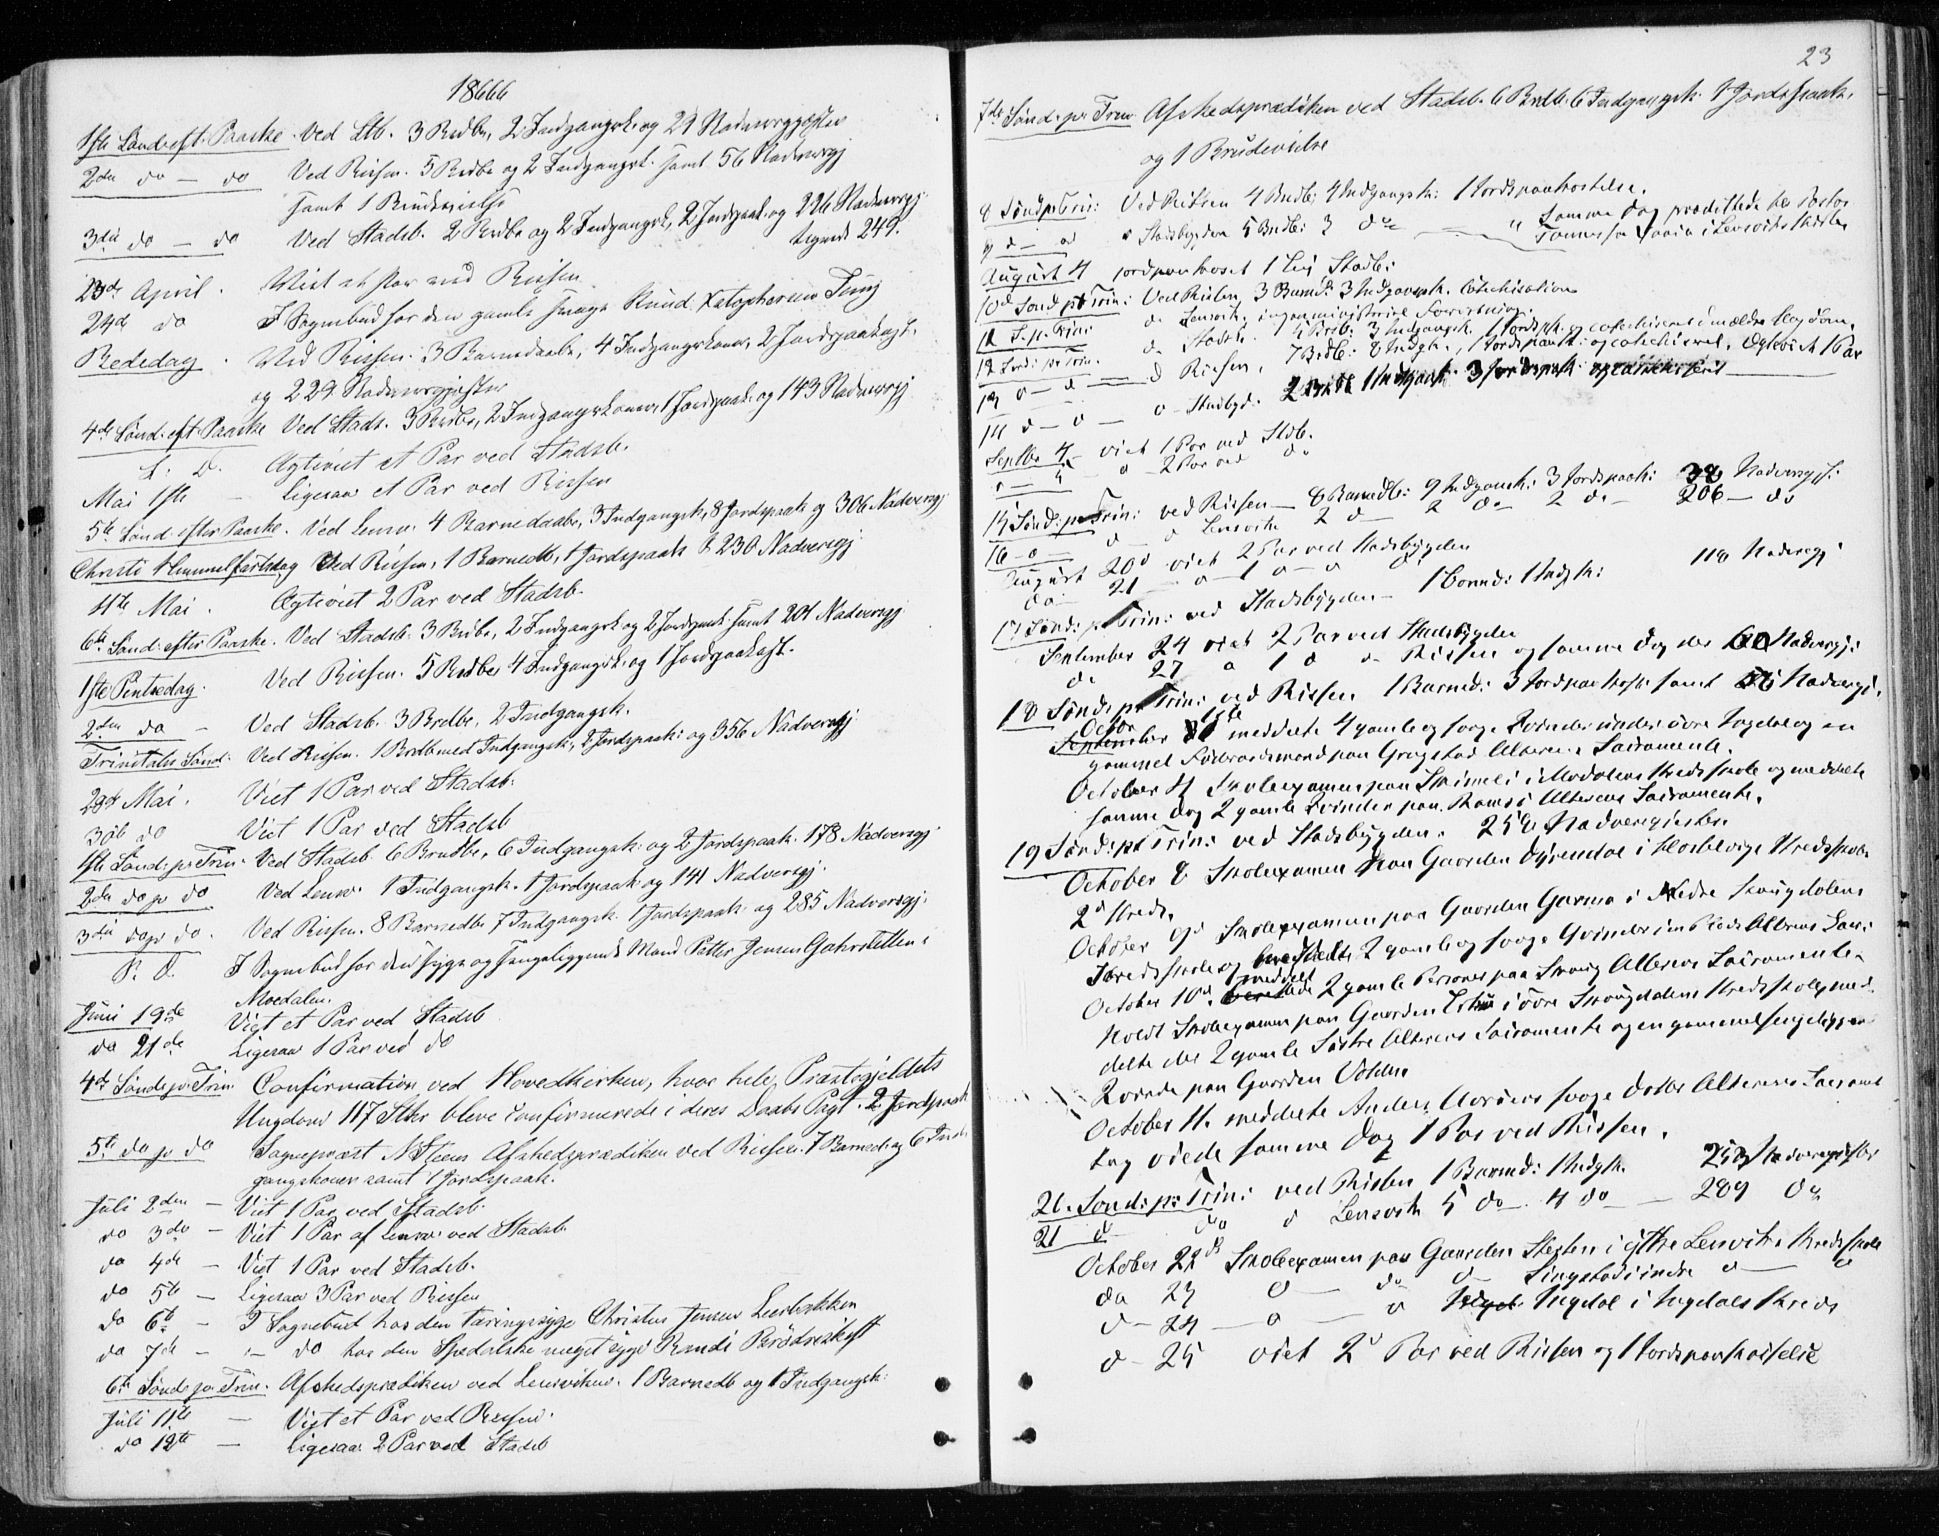 18666
1ste Søndr eft: Paaske. Ved Stb. 3 Brdbe, 2 Indgangsk: og 21 Nadverggjester
2den do — do Ved Rissen. 5 Brdbe og 2 Indgangsk. samt 56 Nadvergj
samt 1 Brudevielse
3die do — do Ved Stadsb. 2 Brdbe og 2 Indgangsk, 2 Jordpaak: og 226 Nadvergj:
249.
23de April. Viet et Par ved Rissen
24de do I Sognebud for den gamle svage Knud
Bededag. Ved Rissen. 3 Barnedaabe, 4 Indgangskoner, 2 Jordpaakast.
og 229 Nadverggjester
4de Sønd: eft: Paaske Ved Stads. 3 Brdbe, 2 Indgangskoner, 1 Jordpaak: og 143 Nadvergj
S. D. Ægteviet et Par ved Stadsb.
Mai 1ste — Ligesaa et Par ved Rissen
5te Sønd: efter Paaske. Ved Lensv. 4 Barnedaabe, 3 Indgangsk, 8 Jordpaak og 306 Nadvergj
Christi Himmelfartsdag Ved Rissen, 1 Barnedb, 1 Jordpaak & 230 Nadvergj
11te Mai. Ægteviet 2 Par ved Stadsb.
6te Sønd: efter Paaske. Ved Stadsb. 3 Brdbe, 2 Indgangsk og 2 Jordpaak samt 201 Nadvergj
1ste Pintsedag. Ved Rissen. 5 Brdbe 4 Indgangsk: og 1 Jordpaakast.
2den do — Ved Stadsb. 3 Brdbe, 2 Indgangsk.
Trinitatis Sønd: Ved Rissen. 1 Brdb med Indgangsk, 2 Jordpaak: og 356 Nadvergj
29de Mai. Viet 1 Par ved Stadsb.
30te do Viet 1 Par ved Stadsb
1ste Sønd: p: Trin: Ved Stadsb. 6 Brndbe, 6 Indgangsk: og 2 Jordspaak. 178 Nadvergj:
2den do p: do Ved Lensv. 1 Indgangsk. 1 Jordspaak: og 141 Nadvergj:
3die do p: do. Ved Rissen. 8 Barnedbe 7 Indgangsk. 1 Jordspaak: og 285 Nadvergj:
S. D. I Sognebud for den syge og sengeliggende Mand Petter Jensen i
Modalen.
Juni 19de Viet et Par ved Stadsb
do 21de Ligesaa 1 Par ved do
4de Sønde p: Trin: Confirmation ved Hovedkirken, hvor hele Præstegjeldets
Ungdom 117 Stkr bleve confirmerede i deres Daabs Pagt. 2 Jordspaak
5te do p: do Sognepræst Afskedsprædiken ved Rissen. 7 Barned: og 6 Ind-
gangskoner samt 1 Jordspaak.
Juli 2den — Viet 1 Par ved Stadsb.
do 3die — Viet 1 Par af Lensv: ved Stadsb.
do 4de — Viet 1 Par ved Stadsb.
do 5te — Ligesaa 3 Par ved Rissen
do 6te — I Sognebud hos den tæringssyge Christen Jensen
do 7de — " — do hos den Spedalske meget syge Randi
6te Sønd: p: Trin. Afskedsprædiken ved Lensviken. 1 Barnedb og 1 Indgangsk:
Juli 11te — Viet et Par ved Rissen.
do 12te — Ligesaa 2 Par ved Stadsb
23
7de Sønd: p: Trin: Afskedsprædiken ved Stadsb. 6 Brdb. 6 Indgangsk: 1 Jordspaak.
og 1 Brudevielse
8 Sønd p Trin: Ved Rissen 4 Brndb; 4 Indgangsk: 1 Jordspaakastelse.
9 d — ad " Stadsbygden 5 Brdb: 3 do — " Samme Dag prædikede Hr Pastor
i Lensvikskirken
August 4 jordpaakastet 1 Lig Stadb:
10d Sønd pt Trin: Ved Rissen 3 Barned: 3 Indgangsk. Catechisation
11 S. p: Trin: do Lensvik, ingen ministeriel Forretning.
12 Sønd: p: Trin. do Stadsb. 4 Brdb: 3 Indgangsk. 1 Jordspk og catechiseret
13 d — d — d Rissen, 7 Brdb: 8 Indgk., 1 Jordspaak: og catechiseret. Ægteviet 1 Par
14 d — d — d — Stadbygd: 2 Brdb 1 Indgangsk: 3 Jordspak: og catechiseret
Septbr 4 — viet 1 Par ved Stdb.
d — 2 Par ved do
15 Sønd: p: Trin: ved Rissen — 8 Barnedb: 9 Indgansk: 3 Jordspaak: 38 Nadvergj:
16 — d — d — d Lensvik 2 d — 2 do 2 do — 206 — do
August 20d viet 2 Par ved Stadsbygden
do — 21 — d — 1 d — d d
17 Sønd: p Trin: ved Stadsbygden — 1 Barned: 1 Indgk: 118 Nadvergj
September 24 viet 2 Par ved Stadsbygden
d 27 d 1 d d Rissen og samme Dag der 60 Nadvergj:
18 Sønd: p: Trin: ved Rissen 1 Barned: 3 Jordpaakast: samt 56 Nadvergj.
Octbr 1ste
September meddelte 4 gamle og svage Qvinder under øvre og en
gammel Føderaadsmand paa Grøgstad Alterens Sacramente.
October 4 Skoleexamen paa i Modalens Kredsskole og meddelte
samme Dag 2 gamle Qvinder paa Ramsø Alterens Sacramente.
19 Sønd: pt Trin: ved Stadsbygden. 258 Nadvergjester
October 8 Skoleexamen paa Gaarden Dyrendal i Kredsskole
2d Kreds.
October 9d Skoleexamen paa Gaarden i Nedre Skaugdalens
Kredsskole og meddelte 2 gamle og svage Qvinder Alterens Sacr:
October 10d meddelt 2 gamle Personer paa Skaug Alterens Sacramente.
Holdt Skoleexamen paa Gaarden i øvre Skaugdalens Kredsskole, med-
delte der 2 gamle Søstre Alterens Sacramente og en gammel sengeliggende
Qvinde paa Gaarden Volden
October 11. meddelte Anders svage Datter Alterens Sacrament
og viede samme Dag 1 Par ved Rissen.
20. Sønd: p: Trin: ved Rissen 1 Barned: 1 Indgk. 253 Nadvergjester
21 d do d Lensvik 5 do. 4 do — 289 do
October 22d Skoleexamen paa Gaarden Sletten i ytre Lensviks Kredsskole
do 23 d — do d — Singstad i indre d — d
d — 24 — d — d Ingdal i Ingdals Kreds
d — 25 viet 2 Par ved Rissen og 1 Jordspaakastelse